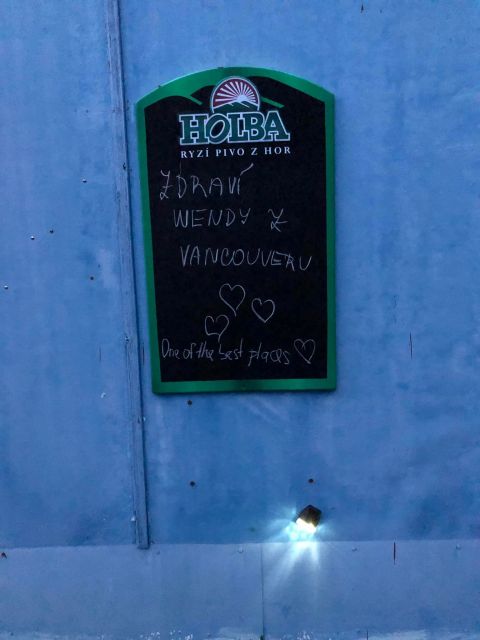 HOLBA
RYZÍ PIVO Z HOR
ZDRAVÍ
WENDY Z
VANCOUVERU
One of the best places